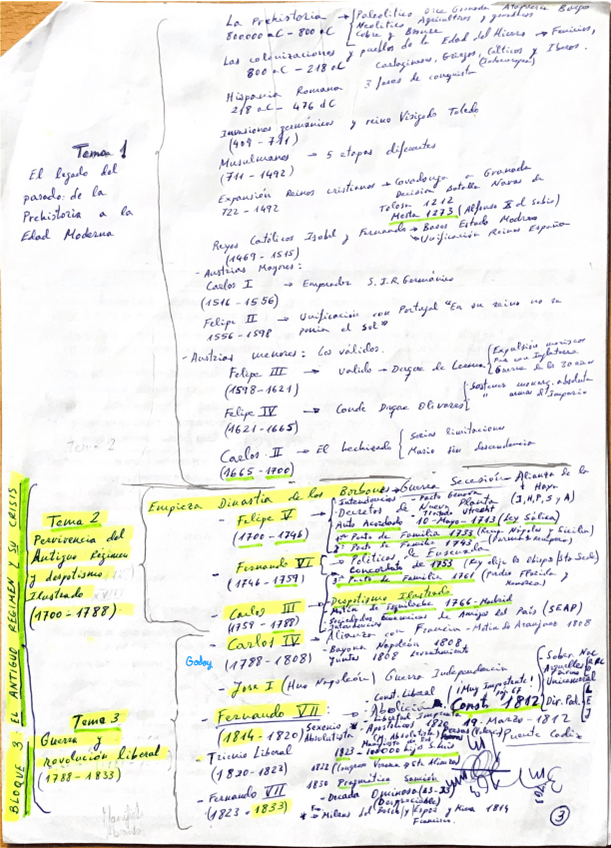 La Prehistoria → Paleolítico Orce Granada Atapuerca Burgos
800000 aC - 800 aC Neolítico Agricultores y ganaderos
Cobre y Bronce
Las colonizaciones y pueblos de la Edad del Hierro → Fenicios,
800 aC - 218 aC Cartagineses, Griegos, Célticos y Iberos.
(Indoeuropeos)
Hispania Romana 3 fases de conquista
218 aC - 476 dC
Invasiones germánicas y reino Visigodo Toledo
(409 - 711)
Musulmanes → 5 etapas diferentes
(711 - 1492)
Expansión Reinos cristianos → Covadonga - Granada
722 - 1492 Decisión Batalla Navas de
Tolosa 1212
Mesta 1273 (Alfonso X el Sabio)
Reyes Católicos Isabel y Fernando → Bases Estado Moderno
(1469 - 1515) Unificación Reinos España
Tema 1
El legado del
pasado: de la
Prehistoria a la
Edad Moderna
- Austrias Mayores:
Carlos I → Emperador S.I.R. Germánico
(1516 - 1556)
Felipe II → Unificación con Portugal "En su reino no se
1556 - 1598 ponía el sol"
- Austrias menores: Los válidos.
Felipe III → Valido → Duque de Lerma
(1598 - 1621)
Expulsión moriscos
Paz con Inglaterra
Guerra de los 30 años
Felipe IV → Conde Duque Olivares
(1621 - 1665)
Sostener monarq. absoluta
Carlos II → El hechizado Serias limitaciones
(1665 - 1700) Muere sin descendencia
Tema 2
BLOQUE 3: EL ANTIGUO RÉGIMEN Y SU CRISIS
Tema 2
Pervivencia del
Antiguo Régimen
y despotismo
Ilustrado
(1700 - 1788)
Empieza Dinastía de los Borbones → Guerra Secesión Alianza de la
Haya
- Felipe V
(1700 - 1746)
- Intendencias
- Decretos de Nueva Planta
Tratado Utrecht
Auto Acordado - 10 - Mayo - 1713 (Ley Sálica)
1er Pacto de Familia 1733 (Reino Nápoles y Sicilia)
2º Pacto de Familia 1743
- Fernando VI
(1746 - 1759)
- Políticas de Ensenada
Concordato de 1753
3er Pacto de Familia 1761
- Carlos III
(1759 - 1788)
- Despotismo Ilustrado
- Motín de Esquilache 1766 - Madrid
- Sociedades Económicas de Amigos del País (SEAP)
- Intendencias
- Carlos IV
(1788 - 1808)
Godoy
- Alianza con Francia - Motín de Aranjuez 1808
- Bayona Napoleón 1808
Juntas 1808 levantamiento
- Jose I (Hno Napoleón) Guerra Independencia
Tema 3
Guerra y
revolución liberal
(1788 - 1833)
- Fernando VII:
(1814 - 1820) Sexenio
Absolutista
- Const. Liberal
- Abolición
- Libertad Imprenta
¡Muy Importante!
pg. 67
Const. 1812
19 - Marzo - 1812
Puente Cadiz
- Sober. Nac
Dir. Pod.
- Trienio Liberal
(1820 - 1823)
1823 - 100000 hijos S. Luis
- Fernando VII
(1823 - 1833)
1830 Pragmática Sanción
- Decada Ominosa (23-33)
(Despreciable)
3